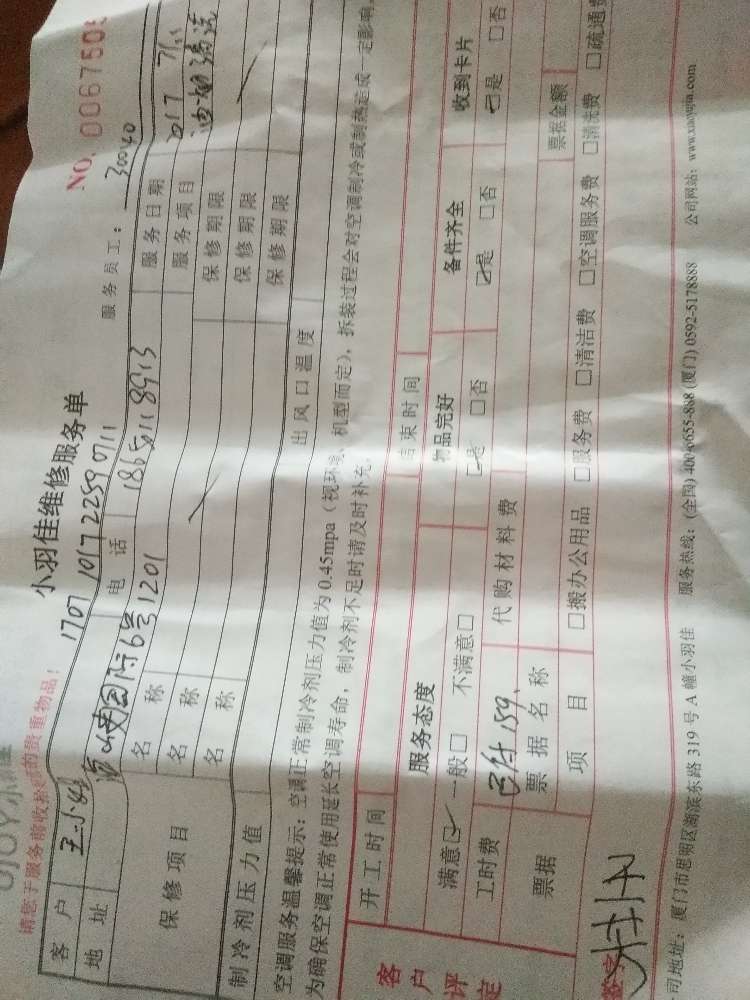 请您于服务前收拾好您的贵重物品！
小羽佳维修服务单
NO. 0067505
1707 101722590711
服务员工： 30040
客户 王小姐 电话 18650118913 服务日期 2017 7/11
地址 国际6号1201 服务项目 油烟清洗
保修项目 名称 保修期限
名称 保修期限
名称 保修期限
制冷剂压力值 出风口温度
空调服务温馨提示：空调正常制冷剂压力值为0.45mpa（视环境、机型而定），拆装过程会对空调制冷或制热造成一定影响，
为确保空调正常使用延长空调寿命，制冷剂不足时请及时补充。
客户评定
开工时间 结束时间
服务态度 物品完好 备件齐全 收到卡片
满意☑ 一般□ 不满意□ ☑是 □否 ☑是 □否 ☑是 □否
工时费 已付159. 代购材料费
票据 票据名称 票据金额
项目 □搬办公用品 □服务费 □清洁费 □空调服务费 □清洗费 □疏通费
签字
司地址：厦门市思明区湖滨东路319号A幢小羽佳 服务热线：(全国)400-6655-868 (厦门)0592-5178888 公司网站：www.xiaoyujia.com